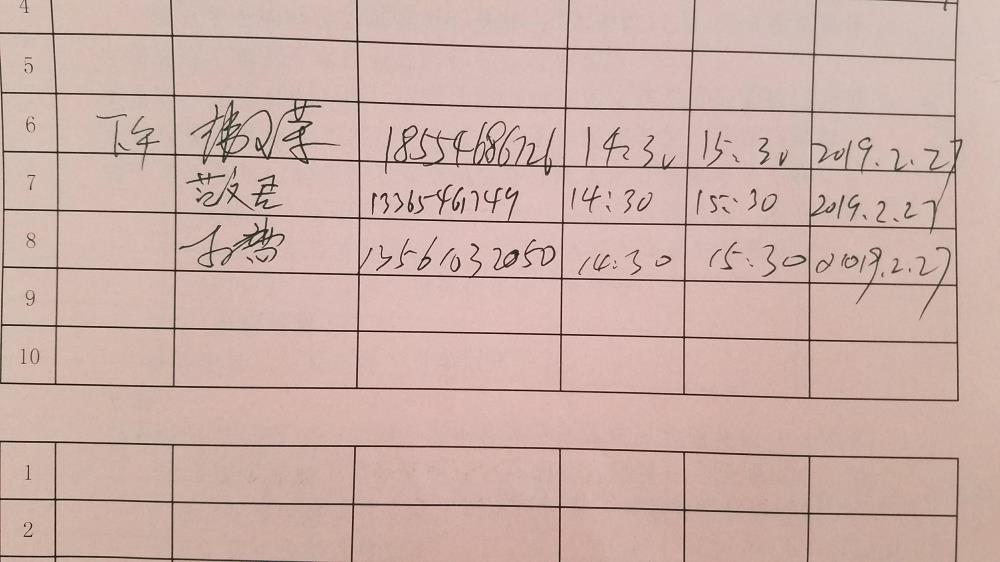 4
5
6 下午 18554686726 14:30 15:30 2019.2.27
7 范文君 13365461749 14:30 15:30 2019.2.27
8 13561032050 14:30 15:30 2019.2.27
9
10
1
2